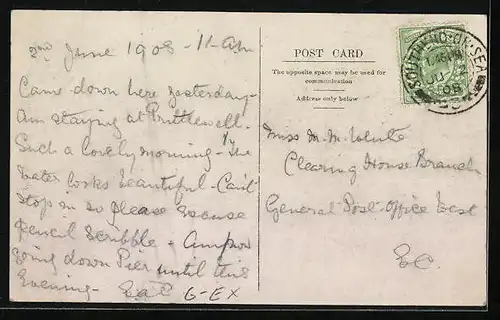 2nd June 1908 - 11-am
Came down here yesterday -
Am staying at Prittlewell.
Such a lovely morning - the
water looks beautiful - Can't
stop in so please excuse
pencil scribble - Am now
going down Pier until this
Evening -
G-EX
POST CARD
The opposite space may be used for
communication
Address only below
SOUTHEND-ON-SEA
JU 2
08
Miss M. M. White
Clearing House Branch
General Post-Office West
E.C.